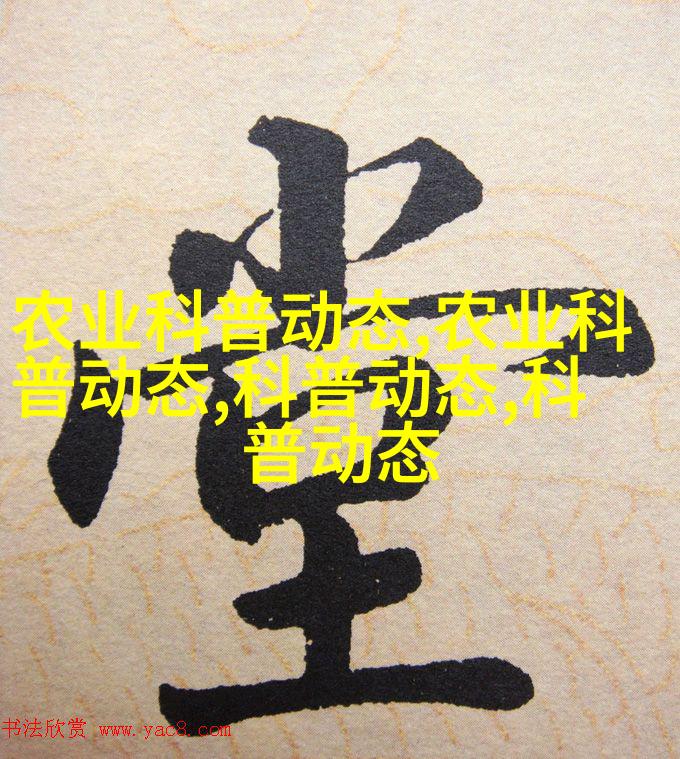 堂
农业科普动态,农业科
普动态,科普动态,科
普动态
书法欣赏 www.yac8.com